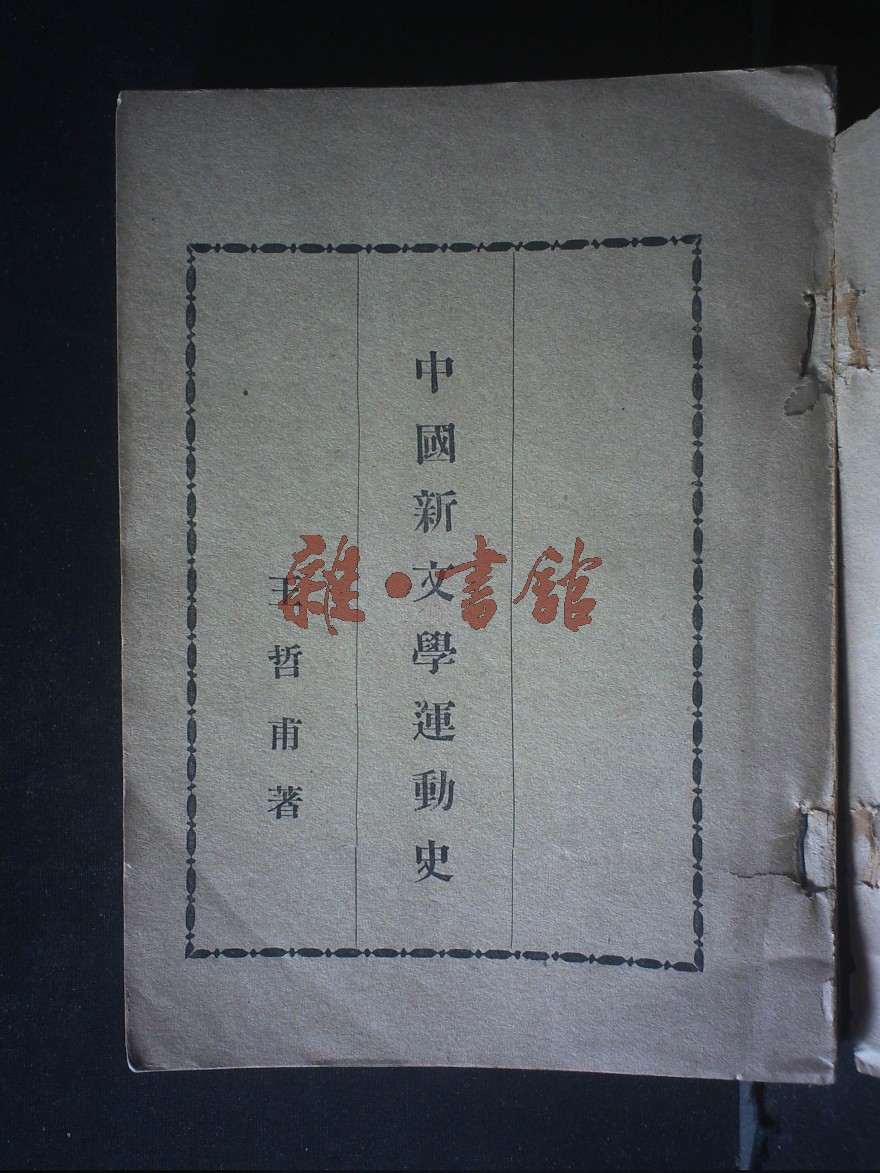 中國新文學運動史
王哲甫著
雜·書館